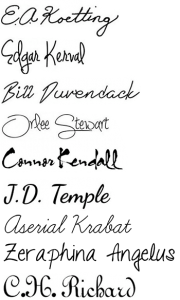 E.A. Koetting
Edgar Kerval
Bill Duvendack
Orlee Stewart
Connor Kendall
J.D. Temple
Aserial Krabat
Zeraphina Angelus
C.H. Richard